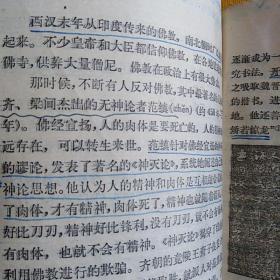 西汉末年从印度传来的佛教，南北朝时广
起来。不少皇帝和大臣都信仰佛教，在各
佛寺，供养大量僧尼。佛教在政治上有很大
那时候，不断有人反对佛教，其中最
齐、梁间杰出的无神论者范缜(zhěn)（约
年）。佛经宣扬，人的肉体是要死亡的，
远存在，可以转生来世。范缜针对佛经宣扬
的谬论，发表了著名的《神灭论》，系统地阐述
神论思想。他认为人的精神和肉体是互相
了肉体，才有精神，肉体死了，精神也就随着
好比刀刃，精神好比锋利，没有刀刃，
有肉体，也就不会有精神。《神灭论》
利用佛教进行的欺骗。齐朝的竟陵王萧子
逐渐成为一
究书法，
之吸取魏晋
的楷书，进
地。他还善